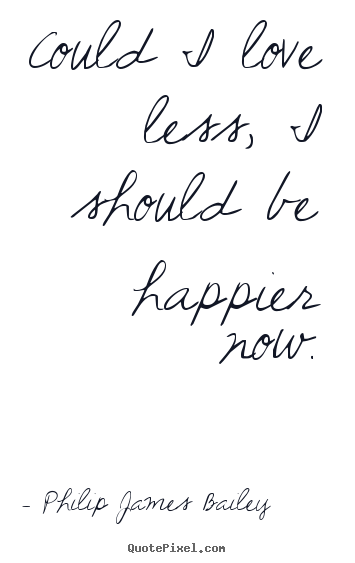 Could I love
less, I
should be
happier
now.
- Philip James Bailey
QuotePixel.com